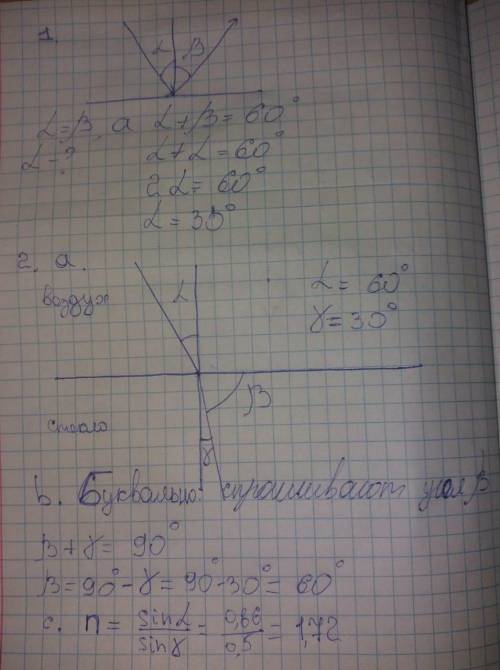 1.
α β
α=β, а α+β=60°
α-? α+α=60°
2α=60°
α=30°
2. а.
воздух α α= 60°
γ=30°
β
стекло
γ
b. Буквально спрашивают угол β
β+γ= 90°
β=90°-γ=90°-30°= 60°
c. n= sinα/sinγ = 0,86/0,5 = 1,72